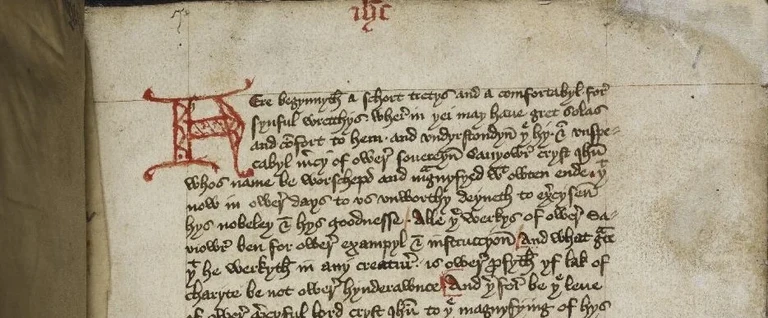 ihc
Here begynnyth a schort tretys and a comfortabyl for
synful wrecchys. wherin þei may haue gret solas
and cōfort to hem. and vndyrstondyn þe hy. & vnspe-
cabyl mcy of ower souereyn Sauyowr cryst Ihū
whos name be worschepd and magnyfyed wtowten ende. þt
now in ower days to vs vnworthy deyneth to excysen
hys nobeley & hys goodnesse. Alle þe werkys of ower Sa-
uiowr ben for ower exampyl & instruccyon. And what gce
þt he werkyth in any creatur. is ower pfyth yf lak of
charyte be not ower hynderawnce. And þerfor be þe leue
of ower mcyful lord cryst Ihū to þe magnyfying of hys